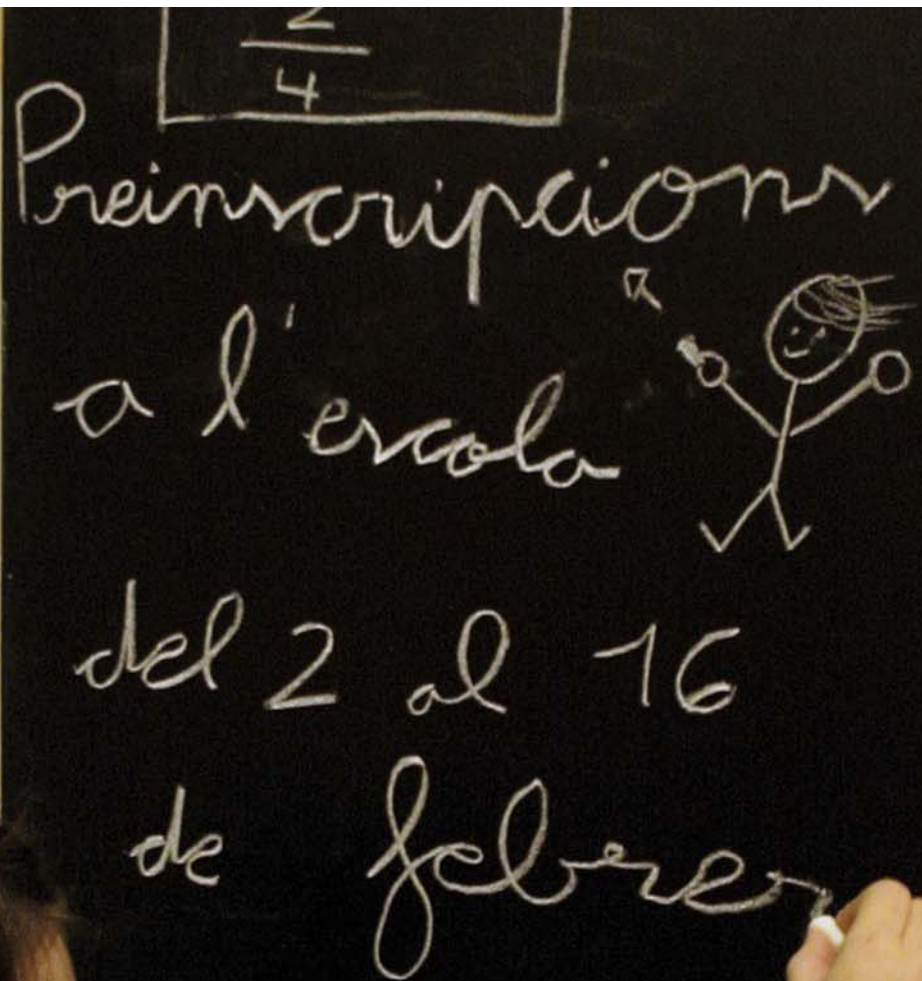 2
4
Preinscripcions
a l'escola
del 2 al 16
de febrer